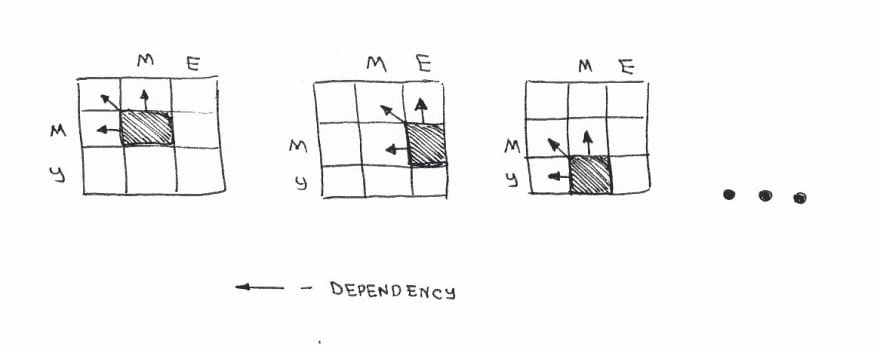 M E
M
y
M E
M
y
M E
M
y
← - DEPENDENCY